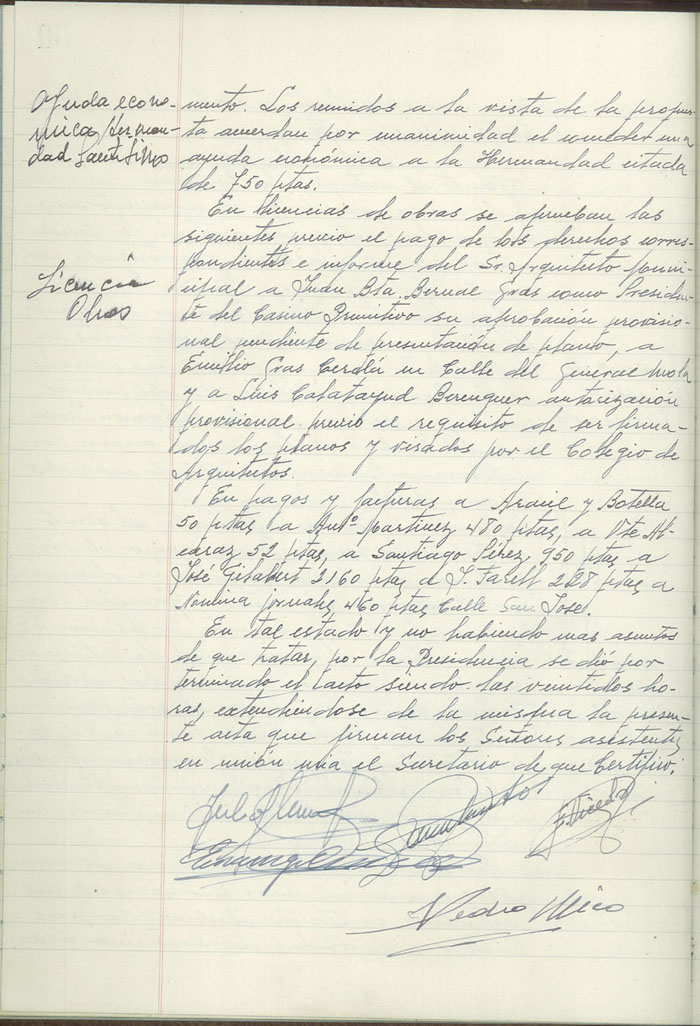 Ayuda econo-
mica Herman-
dad
mento. Los reunidos a la vista de la propues-
ta acuerdan por unanimidad el conceder una
ayuda económica a la Hermandad citada
de 750 ptas.
En licencias de obras se aprueban las
siguientes, previo el pago de los derechos corres-
pondientes e informe del Sr. Arquitecto
Licencia
Obras
a Juan Bta Bernal Gras como Presiden-
te del Casino Primitivo su aprobación provisio-
nal pendiente de presentación de plano, a
Emilio Gras Cerdá en Calle del General Mola
y a Luis Calatayud Berenguer autorización
provisional previo el requisito de ser firma-
dos los planos y visados por el Colegio de
Arquitectos.
En pagos y facturas a y Botella
50 ptas a Martinez 480 ptas, a Vte Al-
caraz 52 ptas, a Santiago Pérez 950 ptas a
José Gisbert 2160 ptas a J. 228 ptas a
Nomina jornales 460 ptas Calle San Jose.
En tal estado y no habiendo mas asuntos
de que tratar, por la Presidencia se dió por
terminado el acto siendo las veintidos ho-
ras, extendiéndose de la misma la presen-
te acta que firman los Señores asistentes
en unión mia el Secretario de que Certifico.
Pedro Mico